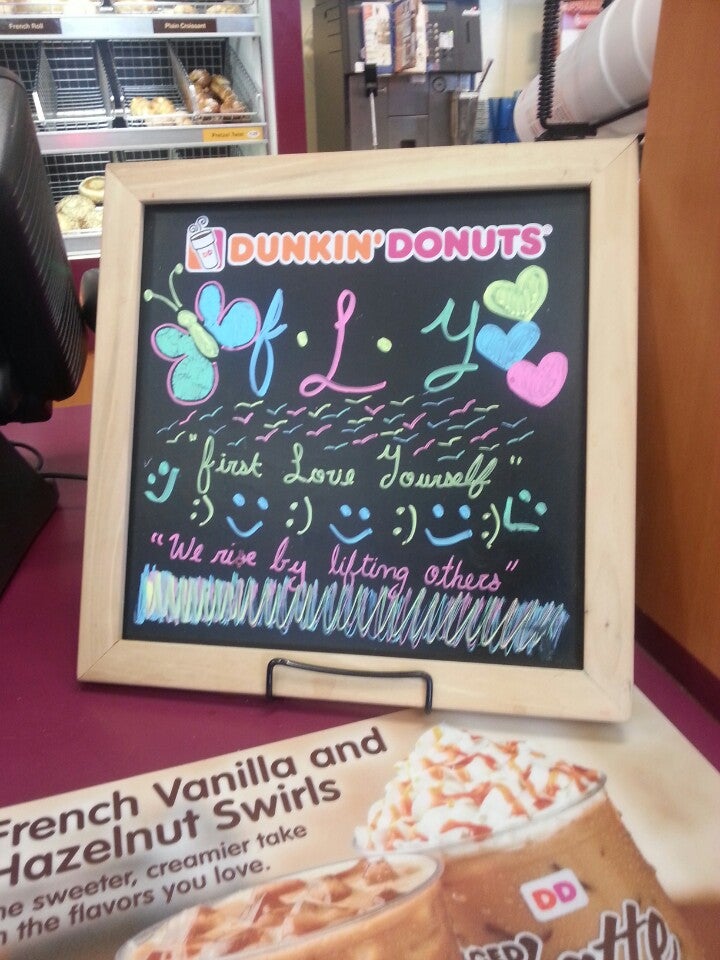 French Roll
Plain Croissant
Pretzel Twist
DD
DUNKIN' DONUTS
f. L. Y
"first Love Yourself"
:) :) :) :)
"We rise by lifting others"
French Vanilla and
Hazelnut Swirls
sweeter, creamier take
the flavors you love.
DD
Latte